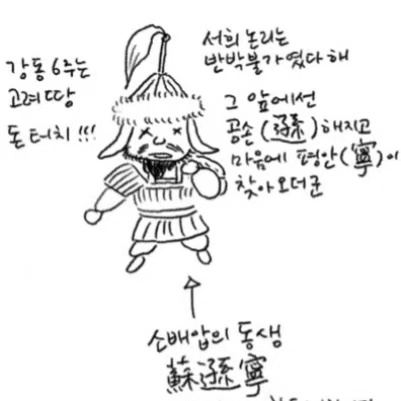 강동6주는
고려땅
돈터치!!!
서희논리는
반박불가였다해
그 앞에선
공손(遜)해지고
마음에 평안(寧)이
찾아오더군
소배압의 동생
蕭遜寧